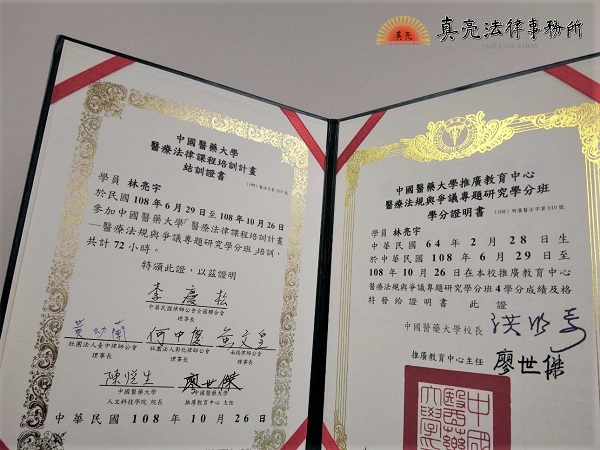 真亮
真亮法律事務所
中國醫藥大學
醫療法律課程培訓計畫
結訓證書
學員 林亮宇
於民國 108 年 6 月 29 日至 108 年 10 月 26 日
參加中國醫藥大學「醫療法律課程培訓計畫
—醫療法規與爭議專題研究學分班」培訓，
共計 72 小時。
特頒此證，以茲證明
李慶松
中華民國律師公會全國聯合會
理事長
社團法人臺中律師公會
理事長
社團法人彰化律師公會
理事長
南投律師公會
理事長
中國醫藥大學
人文科技學院 院長
廖世傑
中國醫藥大學
推廣教育中心 主任
中華民國 108 年 10 月 26 日
中國醫藥大學推廣教育中心
醫療法規與爭議專題研究學分班
學分證明書
學員 林亮宇
中華民國 64 年 2 月 28 日生
於中華民國 108 年 6 月 29 日至
108 年 10 月 26 日在本校推廣教育中心
醫療法規與爭議專題研究學分班 4 學分成績及格
特發給證明書 此證
中國醫藥大學校長
推廣教育中心主任 廖世傑